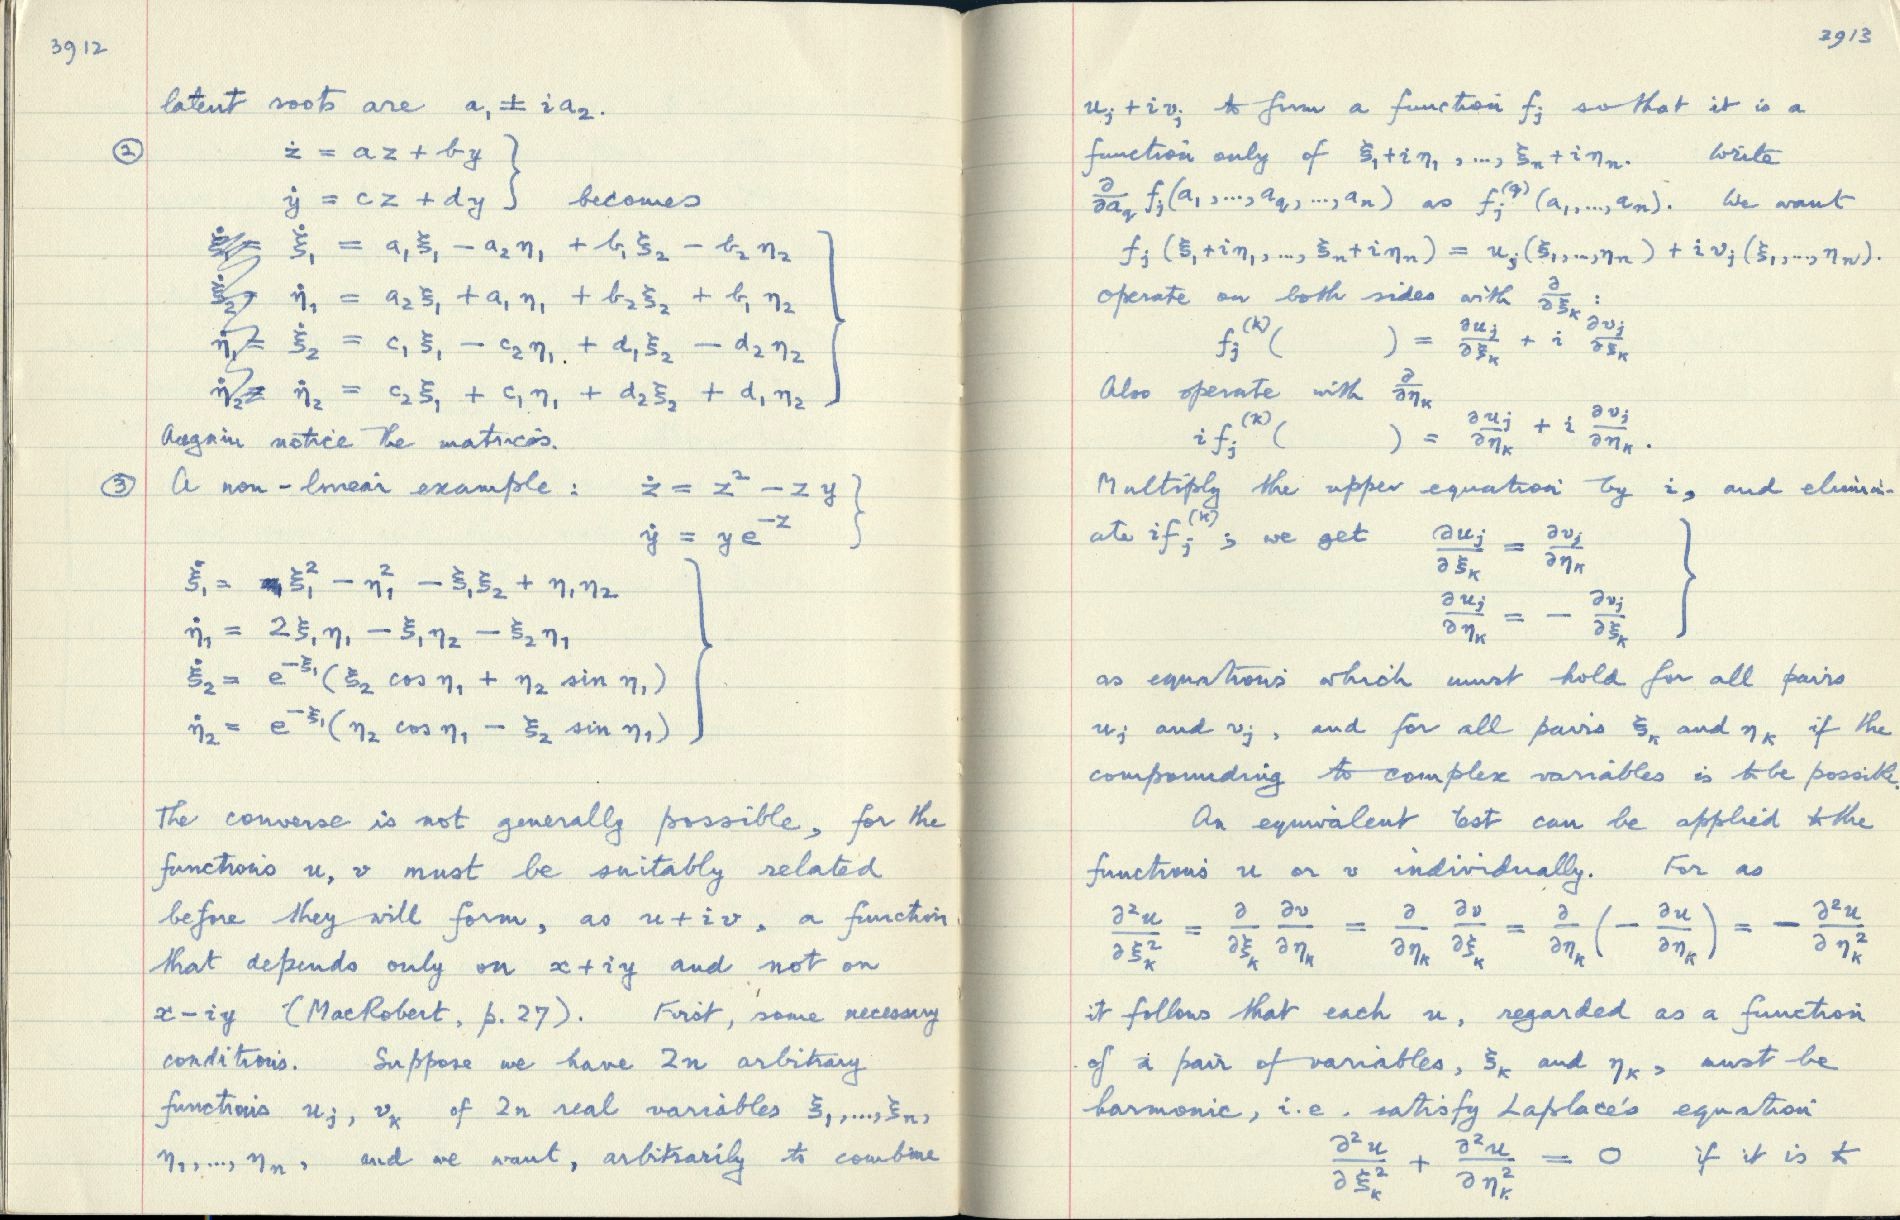 3912
latent roots are a₁ ± i a₂.
② ż = az + by }
ẏ = cz + dy } becomes
ξ̇₁ = a₁ξ₁ − a₂η₁ + b₁ξ₂ − b₂η₂
η̇₁ = a₂ξ₁ + a₁η₁ + b₂ξ₂ + b₁η₂
ξ̇₂ = c₁ξ₁ − c₂η₁ + d₁ξ₂ − d₂η₂
η̇₂ = c₂ξ₁ + c₁η₁ + d₂ξ₂ + d₁η₂
Again notice the matrices.
③ A non-linear example : ż = z² − zy }
ẏ = ye^{−z} }
ξ̇₁ = ξ₁² − η₁² − ξ₁ξ₂ + η₁η₂
η̇₁ = 2ξ₁η₁ − ξ₁η₂ − ξ₂η₁
ξ̇₂ = e^{−ξ₁}(ξ₂ cos η₁ + η₂ sin η₁)
η̇₂ = e^{−ξ₁}(η₂ cos η₁ − ξ₂ sin η₁)
The converse is not generally possible, for the
functions u, v must be suitably related
before they will form, as u + iv, a function
that depends only on x + iy and not on
x − iy (MacRobert, p. 27). First, some necessary
conditions. Suppose we have 2n arbitrary
functions uⱼ, vₖ of 2n real variables ξ₁,...,ξₙ,
η₁,..., ηₙ, and we want, arbitrarily to combine
3913
uⱼ + ivⱼ to form a function fⱼ so that it is a
function only of ξ₁+iη₁ , ..., ξₙ+iηₙ. Write
∂/∂a_q fⱼ(a₁,...,a_q,...,aₙ) as fⱼ^{(q)}(a₁,...,aₙ). We want
fⱼ(ξ₁+iη₁,..., ξₙ+iηₙ) = uⱼ(ξ₁,...,ηₙ) + ivⱼ(ξ₁,..., ηₙ).
operate on both sides with ∂/∂ξₖ :
fⱼ^{(k)}( ) = ∂uⱼ/∂ξₖ + i ∂vⱼ/∂ξₖ
Also operate with ∂/∂ηₖ
i fⱼ^{(k)}( ) = ∂uⱼ/∂ηₖ + i ∂vⱼ/∂ηₖ .
Multiply the upper equation by i, and elimin-
ate ifⱼ^{(k)} ; we get ∂uⱼ/∂ξₖ = ∂vⱼ/∂ηₖ }
∂uⱼ/∂ηₖ = − ∂vⱼ/∂ξₖ }
as equations which must hold for all pairs
uⱼ and vⱼ, and for all pairs ξₖ and ηₖ if the
compounding to complex variables is to be possible.
An equivalent test can be applied to the
functions u or v individually. For as
∂²u/∂ξₖ² = ∂/∂ξₖ ∂v/∂ηₖ = ∂/∂ηₖ ∂v/∂ξₖ = ∂/∂ηₖ (− ∂u/∂ηₖ) = − ∂²u/∂ηₖ²
it follows that each u, regarded as a function
of a pair of variables, ξₖ and ηₖ, must be
harmonic, i.e. satisfy Laplace's equation
∂²u/∂ξₖ² + ∂²u/∂ηₖ² = 0 if it is to